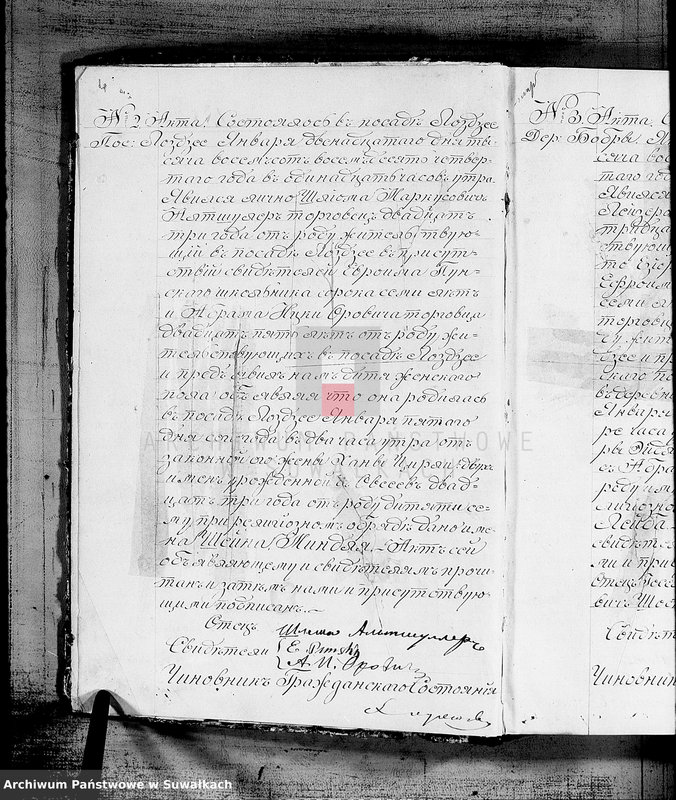 № 2 Акта. Состоялось въ посадѣ Лоздзее
Пос: Лоздзее Января двѣнадцатаго дня ты-
сяча восемсотъ восемьдесятъ четвер-
таго года въ одинадцать часовъ утра.
Явился лично Шліома Маркусовичъ
Алтшулеръ торговецъ двадцать
три года отъ роду жительствую-
щій въ посадѣ Лоздзее въ присут-
ствіи свидѣтелей Евроима Пун-
скаго школьника сорока семи лѣтъ
и Абрама Ицки Оровича торговца
двадцать пять лѣтъ отъ роду жи-
тельствующихъ въ посадѣ Лоздзее
и предъявилъ намъ дитя женскаго
пола объявляя что она родилась
въ посадѣ Лоздзее Января пятаго
дня сего года въ два часа утра отъ
законной его жены Ханы двухъ
именъ урожденной двад-
цать три года отъ роду дитяти се-
му при религіозномъ обрядѣ дано име-
на Шейна Миндля. Актъ сей
объявляющему и свидѣтелямъ прочи-
танъ и затѣмъ нами и присутствую-
щими подписанъ.
Отецъ Шлема Альтшуллеръ
Свидѣтели E Punski
А. И. Оровичъ
Чиновникъ Гражданскаго Состоянія
№ 3 Акта. С
Дер: Бобры. Я
сяча вос
таго год
Явился
Лейзеро
тридца
ствующ
Ефроим
семи л
торговц
ду жит
дзее и пр
скаго по
въ деревн
Января
ре часа
съ Абра
роду им
лигіозно
Лейба.
свидѣте
ми и при
Отецъ
Свидѣт
Чиновник
ARCHIWUM PAŃSTWOWE
Archiwum Państwowe w Suwałkach